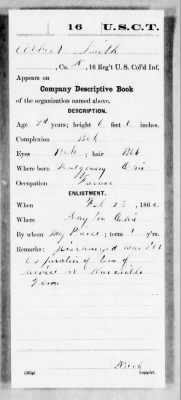 16 U.S.C.T.
Albert Smith
, Co. , 16 Reg't U. S. Col'd Inf.
Appears on
Company Descriptive Book
of the organization named above.
DESCRIPTION.
Age years; height 6 feet inches.
Complexion Blk
Eyes Blk ; hair Blk
Where born Montgomery Ohio
Occupation Farmer
ENLISTMENT.
When Feb 23 , 186
Where Dayton Ohio
By whom ; term 1 y'rs.
Remarks: Discharged
Expiration of term of
service at
Tenn
Copyist.